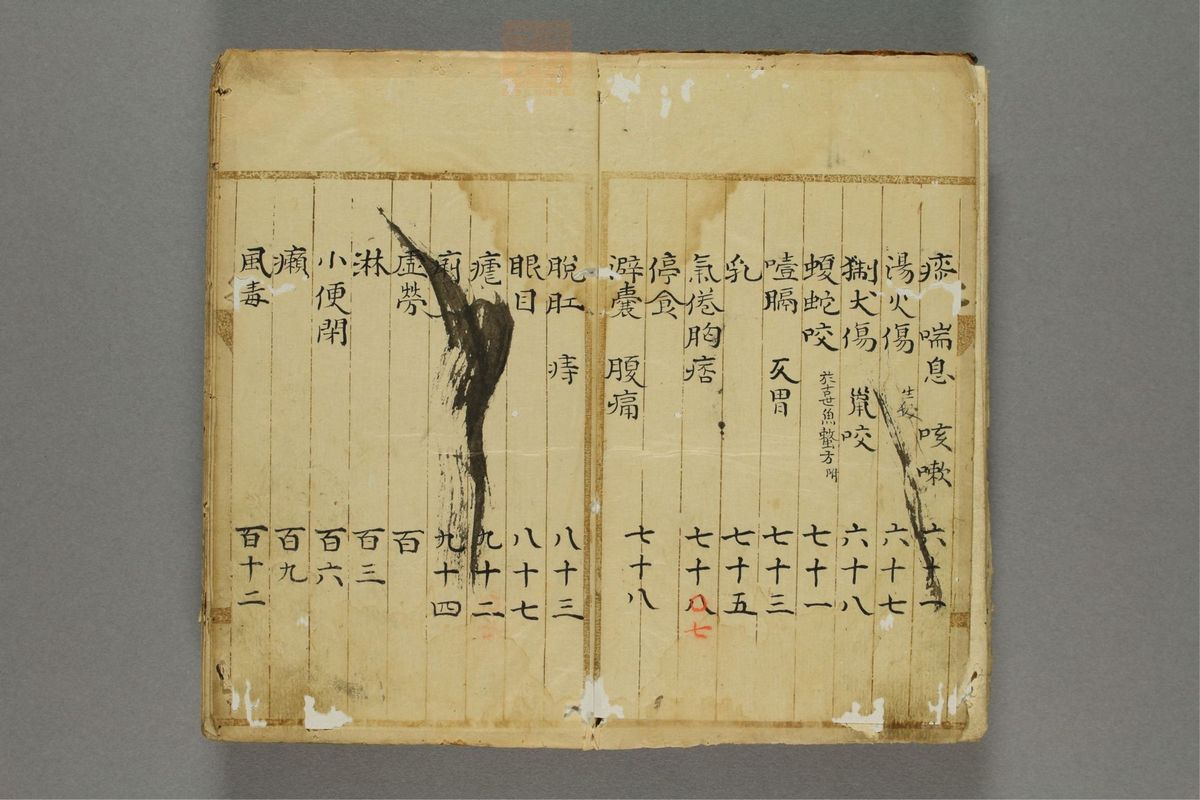 痰 喘息 咳嗽 六十一
湯火傷 六十七
猘犬傷 鼠咬 六十八
蝮蛇咬 於古世魚螫方附 七十一
噎膈 仄胃 七十三
乳 七十五
氣倦胸痞 七十八 七
停食
澼囊 腹痛 七十八
脫肛 痔 八十三
眼目 八十七
瘧 九十二
痢 九十四
虛勞 百
淋 百三
小便閉 百六
癩 百九
風毒 百十二